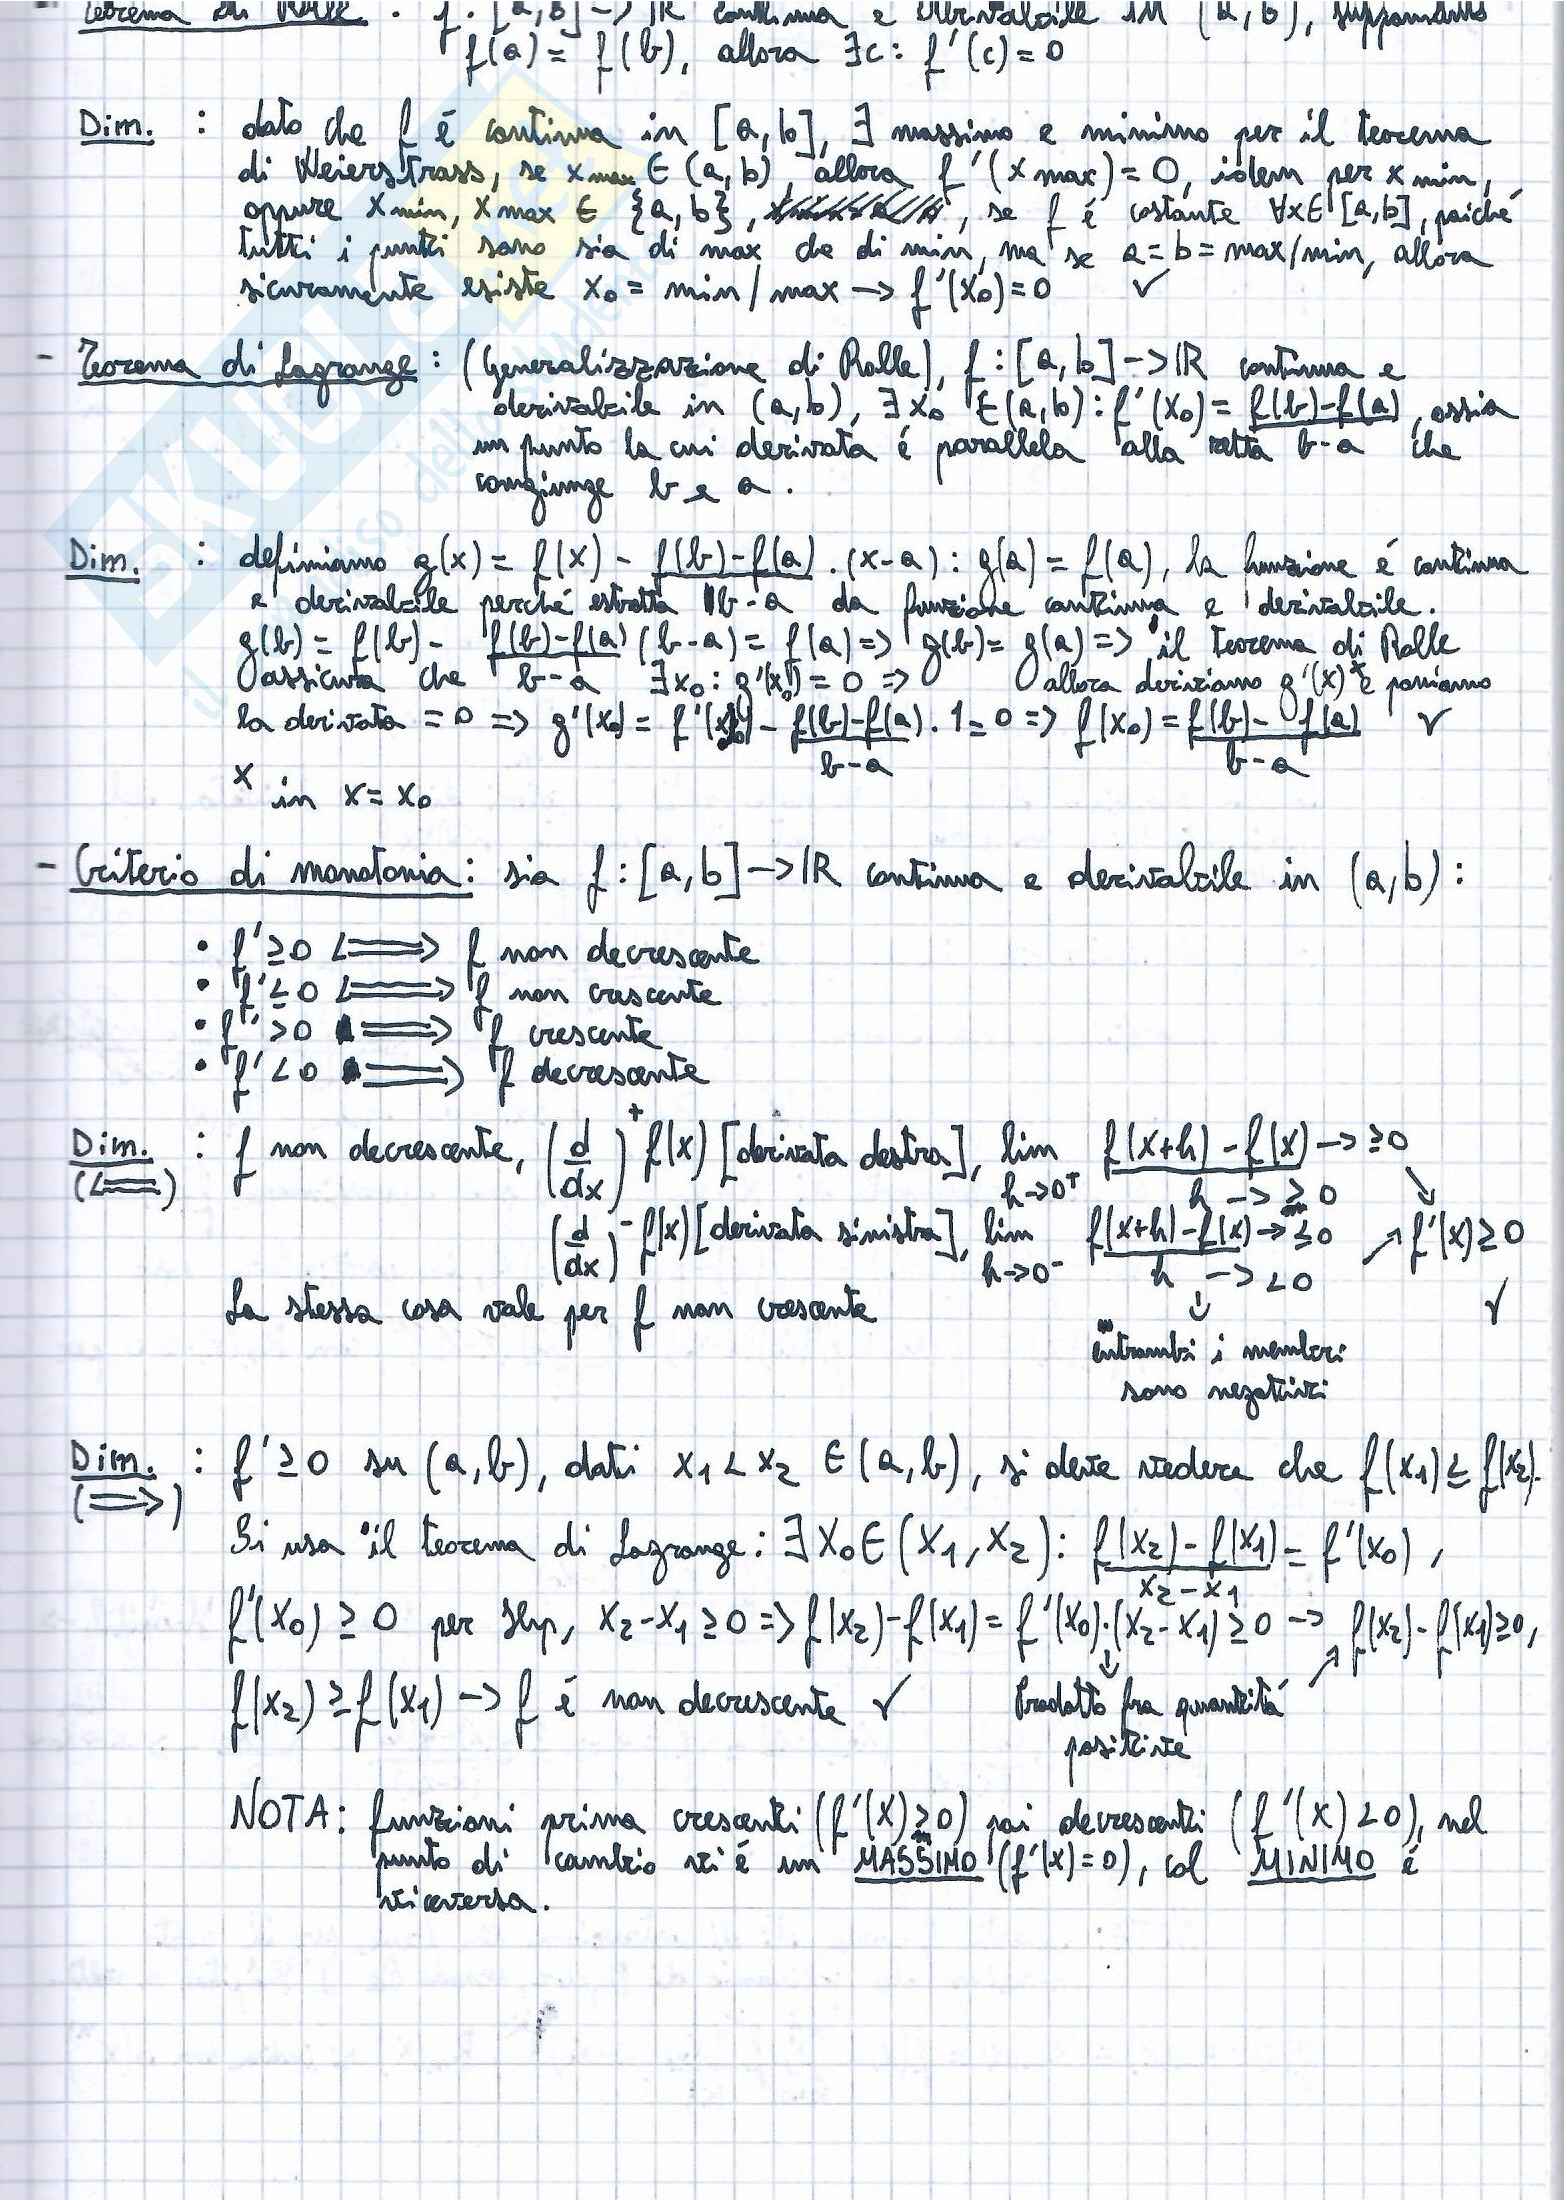 Teorema di Rolle : f : [a,b] -> ℝ continua e derivabile in (a,b), supponiamo
f(a) = f(b), allora ∃c : f'(c) = 0
Dim. : dato che f é continua in [a,b], ∃ massimo e minimo per il teorema
di Weierstrass, se x max ∈ (a,b), allora f'(x max) = 0, idem per x min,
oppure x min, x max ∈ {a,b}, , se f é costante ∀x∈[a,b], poiché
tutti i punti sono sia di max che di min, ma se a=b=max/min, allora
sicuramente esiste x₀ = min/max -> f'(x₀)=0 √
- Teorema di Lagrange : (Generalizzazione di Rolle), f : [a,b] -> ℝ continua e
derivabile in (a,b), ∃ x₀ ∈ (a,b) : f'(x₀) = f(b)-f(a) , ossia
un punto la cui derivata é parallela alla retta b-a che
congiunge b e a .
Dim. : definiamo g(x) = f(x) - f(b)-f(a) . (x-a) : g(a) = f(a), la funzione é continua
e derivabile perché estratta b-a da funzione continua e derivabile.
g(b) = f(b) - f(b)-f(a) (b-a) = f(a) => g(b) = g(a) => il teorema di Rolle
assicura che b-a ∃x₀ : g'(x₀) = 0 => allora deriviamo g'(x)* e poniamo
la derivata = 0 => g'(x₀) = f'(x₀) - f(b)-f(a) . 1 = 0 => f(x₀) = f(b) - f(a) √
b-a b-a
x in x = x₀
- Criterio di monotonia : sia f : [a,b] -> ℝ continua e derivabile in (a,b) :
• f' ≥ 0 <==> f non decrescente
• f' ≤ 0 <==> f non crescente
• f' > 0 ==> f crescente
• f' < 0 ==> f decrescente
Dim. : f non decrescente, (d/dx)⁺ f(x) [derivata destra], lim f(x+h) - f(x) -> ≥0
(<==) h->0⁺ h -> ≥ 0
(d/dx)⁻ f(x) [derivata sinistra], lim f(x+h) - f(x) -> ≤0 f'(x) ≥ 0
h->0⁻ h -> <0
La stessa cosa vale per f non crescente √
entrambi i membri
sono negativi
Dim. : f' ≥ 0 su (a,b), dati x₁ < x₂ ∈ (a,b), si deve vedere che f(x₁) ≤ f(x₂).
(==>)
Si usa il teorema di Lagrange : ∃ x₀ ∈ (x₁, x₂) : f(x₂) - f(x₁) = f'(x₀) ,
x₂-x₁
f'(x₀) ≥ 0 per Hp, x₂-x₁ ≥ 0 => f(x₂)-f(x₁) = f'(x₀).(x₂-x₁) ≥ 0 -> f(x₂)-f(x₁) ≥0,
f(x₂) ≥ f(x₁) -> f é non decrescente √ Prodotto fra quantità
positive
NOTA : funzioni prima crescenti (f'(x) ≥ 0) poi decrescenti (f'(x) < 0), nel
punto di cambio vi é un MASSIMO (f'(x) = 0), col MINIMO é
viceversa.